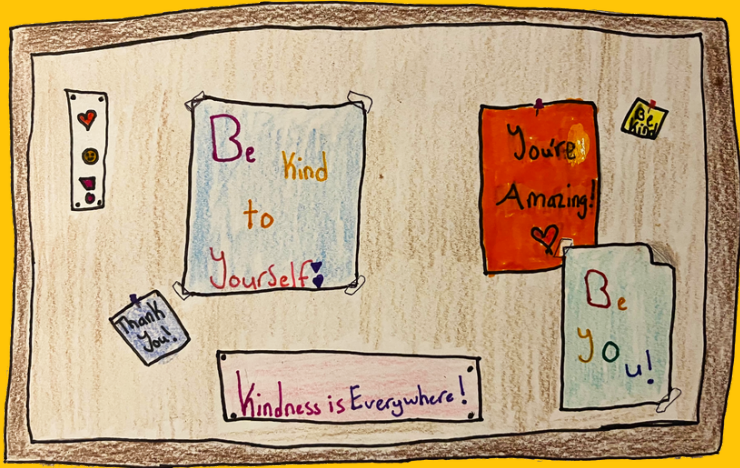 Be
Kind
to
Yourself!
You're
Amazing!
Be
Kind!
Thank
You!
Be
You!
Kindness is Everywhere!